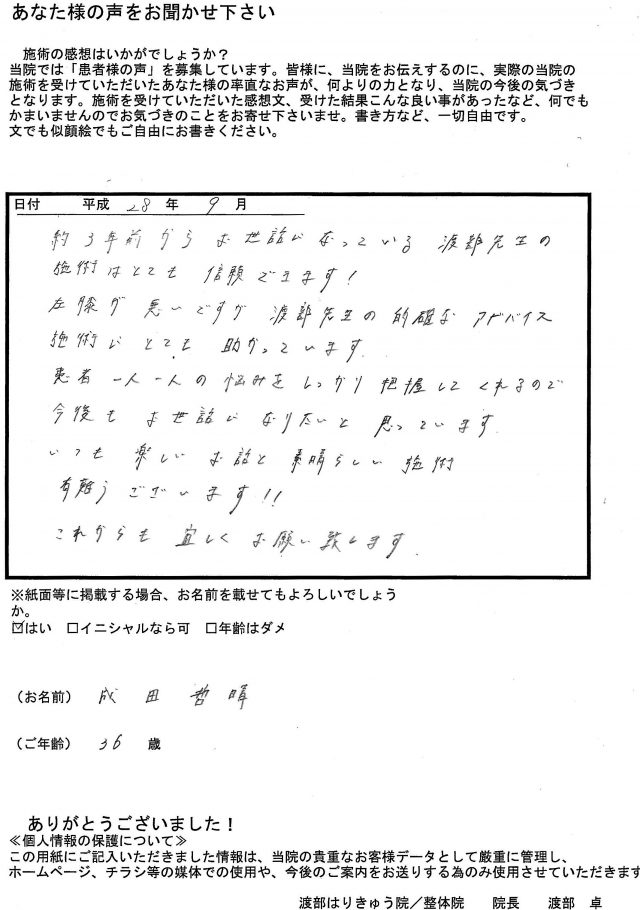 あなた様の声をお聞かせ下さい
施術の感想はいかがでしょうか?
当院では「患者様の声」を募集しています。皆様に、当院をお伝えするのに、実際の当院の
施術を受けていただいたあなた様の率直なお声が、何よりの力となり、当院の今後の気づき
となります。施術を受けていただいた感想文、受けた結果こんな良い事があったなど、何でも
かまいませんのでお気づきのことをお寄せ下さいませ。書き方など、一切自由です。
文でも似顔絵でもご自由にお書きください。
日付 平成 28 年 9 月
約3年前から お世話になっている 渡部先生の
施術はとても 信頼できます!
左膝が 悪いですが 渡部先生の 的確な アドバイス
施術に とても 助かっています。
患者 一人一人の 悩みを しっかり 把握してくれるので
今後も お世話に なりたいと 思っています。
いつも 楽しい お話と 素晴らしい 施術
有難うございます!!
これからも 宜しく お願い致します。
※紙面等に掲載する場合、お名前を載せてもよろしいでしょう
か。
☑はい □イニシャルなら可 □年齢はダメ
(お名前) 成田 哲暉
(ご年齢) 36 歳
ありがとうございました!
≪個人情報の保護について≫
この用紙にご記入いただきました情報は、当院の貴重なお客様データとして厳重に管理し、
ホームページ、チラシ等の媒体での使用や、今後のご案内をお送りする為のみ使用させていただきます
渡部はりきゅう院/整体院 院長 渡部 卓